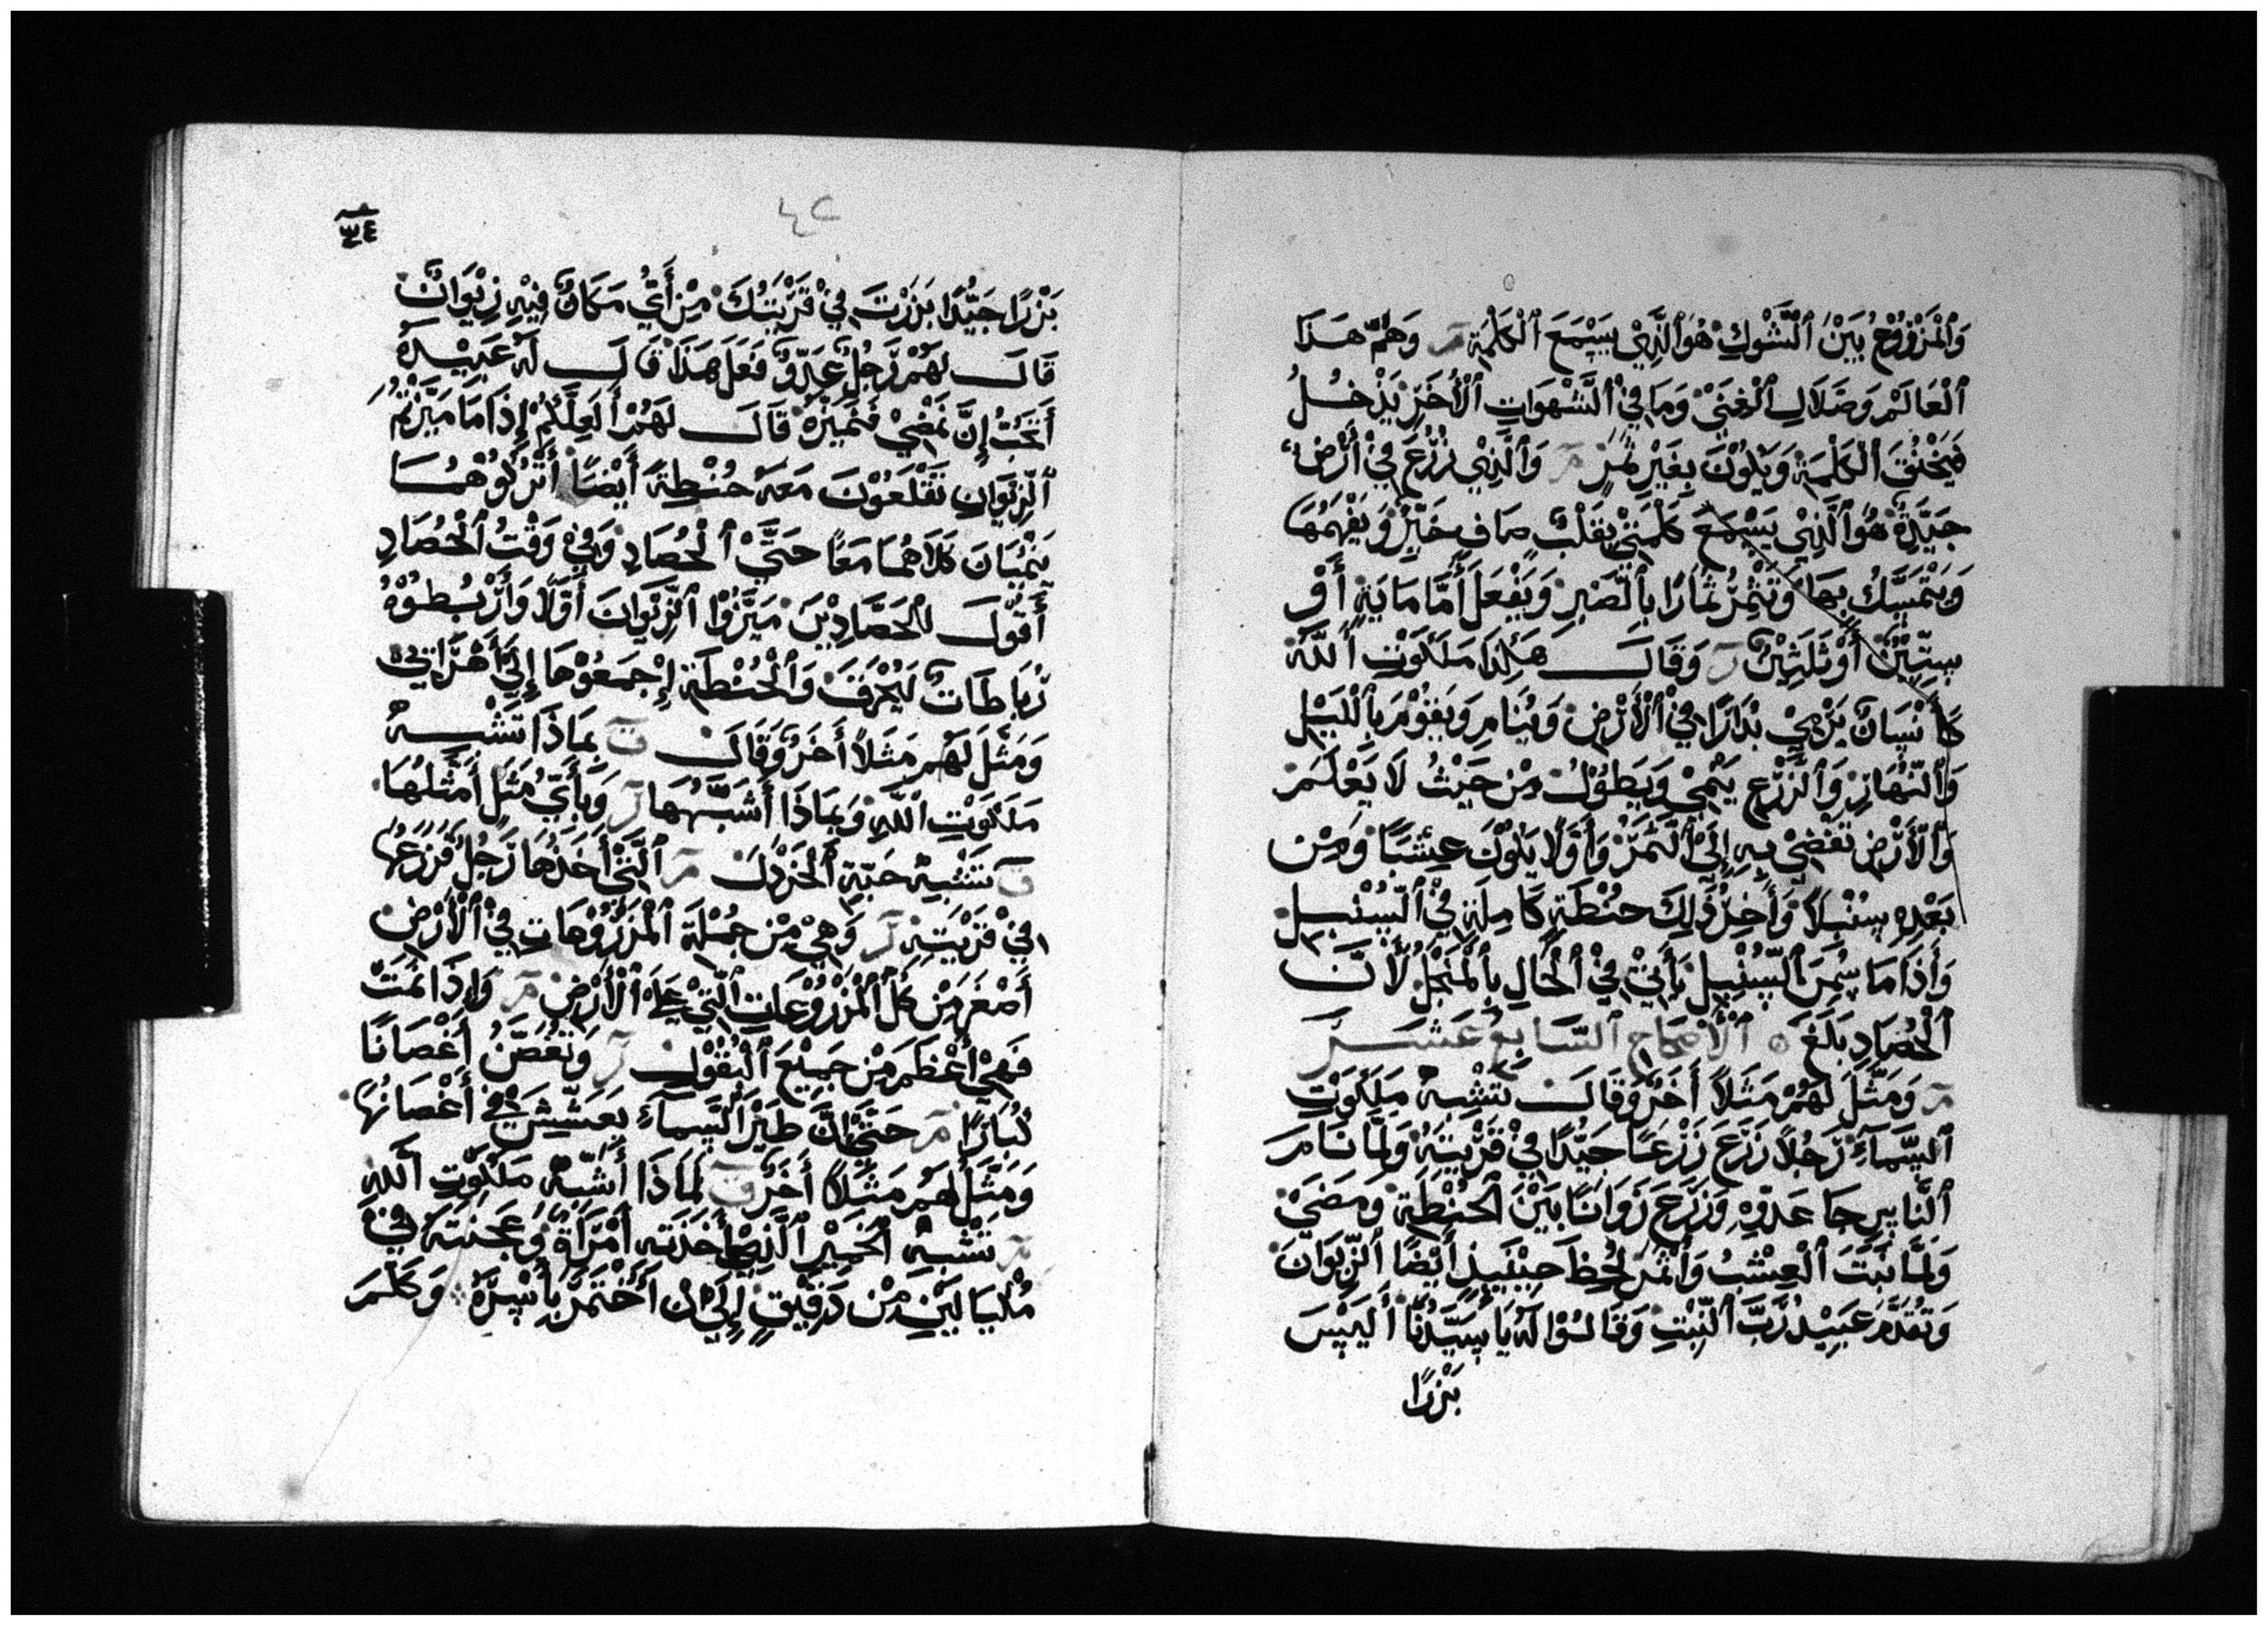 وَٱلْمَزْرُوْعُ بَيْنَ ٱلشَّوْكِ هُوَ ٱلَّذِيْ يَسْمَعَ ٱلْكَلْمَةِ مر وَهُمّ هَذَا
ٱلْعَالَمْ وَضَلَال ٱلْغِنَيْ وَمَا فِيْ ٱلشَّهْوَاتِ ٱلْأُخَرِ يَدْخُلُ
فَيَخْنُقَ ٱلْكَلْمَةِ وَيَكُوْنَ بِغَيْرِ ثَمَرٍ مر وَٱلَّذِيْ زُرْعَ فِيْ أَرْض
جَيِّدَةٌ هُوَ ٱلَّذِيْ يَسْمَعَ كَلْمَتِيْ بِقَلْبٍ صَافٍ خَيِّرٌ وَيَفْهَمُهَا
وَيَتْمَسَّكُ بِهَا وَتُثْمِرُ ثِمَارًا بِٱلصَّبْرِ وَيَفْعَلَ أَمَّا مَايَةٍ أَوْ
سِتِّيْنَ أَوْ ثَلَثِيْنَ ر وَقَالَ هَكِذَا مَلَكَوْتِ ٱللَّهُ
كَأنْسَانٌ يَرْمِيْ بَذَارًا فِيْ ٱلْأَرْضِ وَيُنَام وَيَقُوْمَ بِٱلْلَيْل
وَٱلنَّهَارِ وَٱلزَّرْعِ يَنْمِيْ وَيَطُوْلُ مِنْ حَيْثُ لَا يَعْلَمَ
وَٱلْأَرْضِ تَفْضِيْ بِهِ إِلَيْ ٱلثَّمَرْ وَأَوَّلًا يَكُوْنَ عِشْبًا وَمِنْ
بَعْدِهِ سِنْبِلاً وَأَخِرْ ذَلِكَ حنْطَةٍ كَامِلَةٍ فِيْ ٱلسُنْبِل
وَأَذَا مَا سِمُنَ ٱلسُّنْبِلِ يَأْتِيْ فِيْ ٱلْحَالِ بِٱلْمَنْجَلْ لأَنَّ
ٱلْحُصَادِ بَلَغَ ٥ ٱلْأَصْحَاحِ ٱلسَّابِعْ عَشَرَ
مر وَمَثَّلَ لَهُمْ مَثَلاً أَخَرٌ وَقَالَ تَشْبِهُ مَلَكَوْتِ
ٱلسَّمَآءِ رَجُلاً زَرَعَ زَرْعًا جَيِّدًا فِيْ قَرْيَتِهُ وَلَمَّا نَامَ
ٱلنَّاسِ جَا عَدُوِّهِ وَزَرَعَ زَوَانًا بَيْنَ ٱلْحُنْطَةِ وَمَضَيْ
وَلَمَّا نَبَتَ ٱلْعِشْبُ وَأَثْمَرَ لُحِظَ حِيْنَيِذٍ أَيْضًا ٱلزِّيْوَانَ
وَتَقَدَّمَ عَبِيْدُ رَّبَّ ٱلْبَيْتِ وَقَالُوْا لَهُ يَا سَيِّدُنَا أَلَيْسَ
بَزْرًا
٤٢
٣٤
بَزْرًا جَيِّدًا بَزَرْتَ فِيْ قَرْيَتُكَ مِنْ أَيُّ مَكَانٌ فِيْهِ زِيْوَانٌ
قَالَ لَهُمْ رَّجُلٌ عَدُوٌّ فَعَلَ هَذَا قَالَ لَهُ عَبِيْدَهُ
أَتَحُبُّ إِنَّ نَمْضِيْ فَنَمَيِّزَهُ قَالَ لَهُمْ أَلَعِلَّكُمْ إِذَا مَا مَيَّزْتُمُ
ٱلزِّيْوَانِ تَقْلَعُوْنَ مَعَهُ حُنْطِةَ أَيْضًا أَتْرُكُوْهُمَا
يَنْمُيَانَ كَلَاهُمَا مَعًا حَتَّيْ ٱلْحُصَادِ وَفِيْ وَقْتُ ٱلْحُصَادِ
أَقُوْلَ للْحَصَّادِيْنَ مَيِّزُوْا ٱلزِّيْوَانَ أَوَّلاً وَأَرْبُطُوْهُ
رُبَاطَاتٌ لِيَحْرَقَ وَٱلْحُنْطَةِ إِجْمَعُوْهَا إِلَيْ أَهْرَايِيْ
وَمَثَلَ لَهُمْ مَثَلاً أَخَرٌ وَقَالَ ق بِمَاذَا تَشْبِهُ
مَلَكَوْتِ ٱللَّهِ وَبِمَاذَا أَشَبِّهُهَا ر وَبِأَيُّ مَثَلَ أَمَثِّلُهَا
ق تَشْبِهُ حَبَّةِ ٱلْخَرْدَلَ مر ٱلَّتِيْ أَخَذُهَا رَّجُلٌ فَزَرَعُهَا
فِيْ قَرْيَتِهِ ر وَهِيْ مِنْ جُمْلَةِ ٱلْمَزْرُوْعَاتِ فِيْ ٱلْأَرْضِ
أَصْغَرَ مِنْ كُلّ ٱلْمَزْرُوْعَاتِ ٱلَّتِيْ عَلَي ٱلْأَرْضِ مر وَإِذَا نَمَتْ
فَهِيْ أَعْظَمَ مِنْ جَمِيْعَ ٱلْبُقُوْلِ ر وَتَغُصِّنُ أَغْصَانًا
كُبَارًا مر حَتَّي أنَّ طَيْرَ ٱلسَّمَآءِ يَعَشِّشِ فِيْ أَغْصَانُهَا
وَمَثَّلَ لَهُمْ مَثَلًا أَخَرٌ ق لِمَاذَا أَشَبِّهُ مَلَكَوْتِ ٱللَّهِ
مر تَشْبِهُ ٱلْخَمِيْرِ ٱلَّذِيْ أَخَذَتْهِ أَمْرَأَةٌ وَعَجَنَتَهُ فِيْ
مُكْيَالَيْنِ مِنْ دَقِيْقٍ إِلَيْ أن أَخْتَمَرَ بِأَسْرَّهُ وَكَلَّمَ